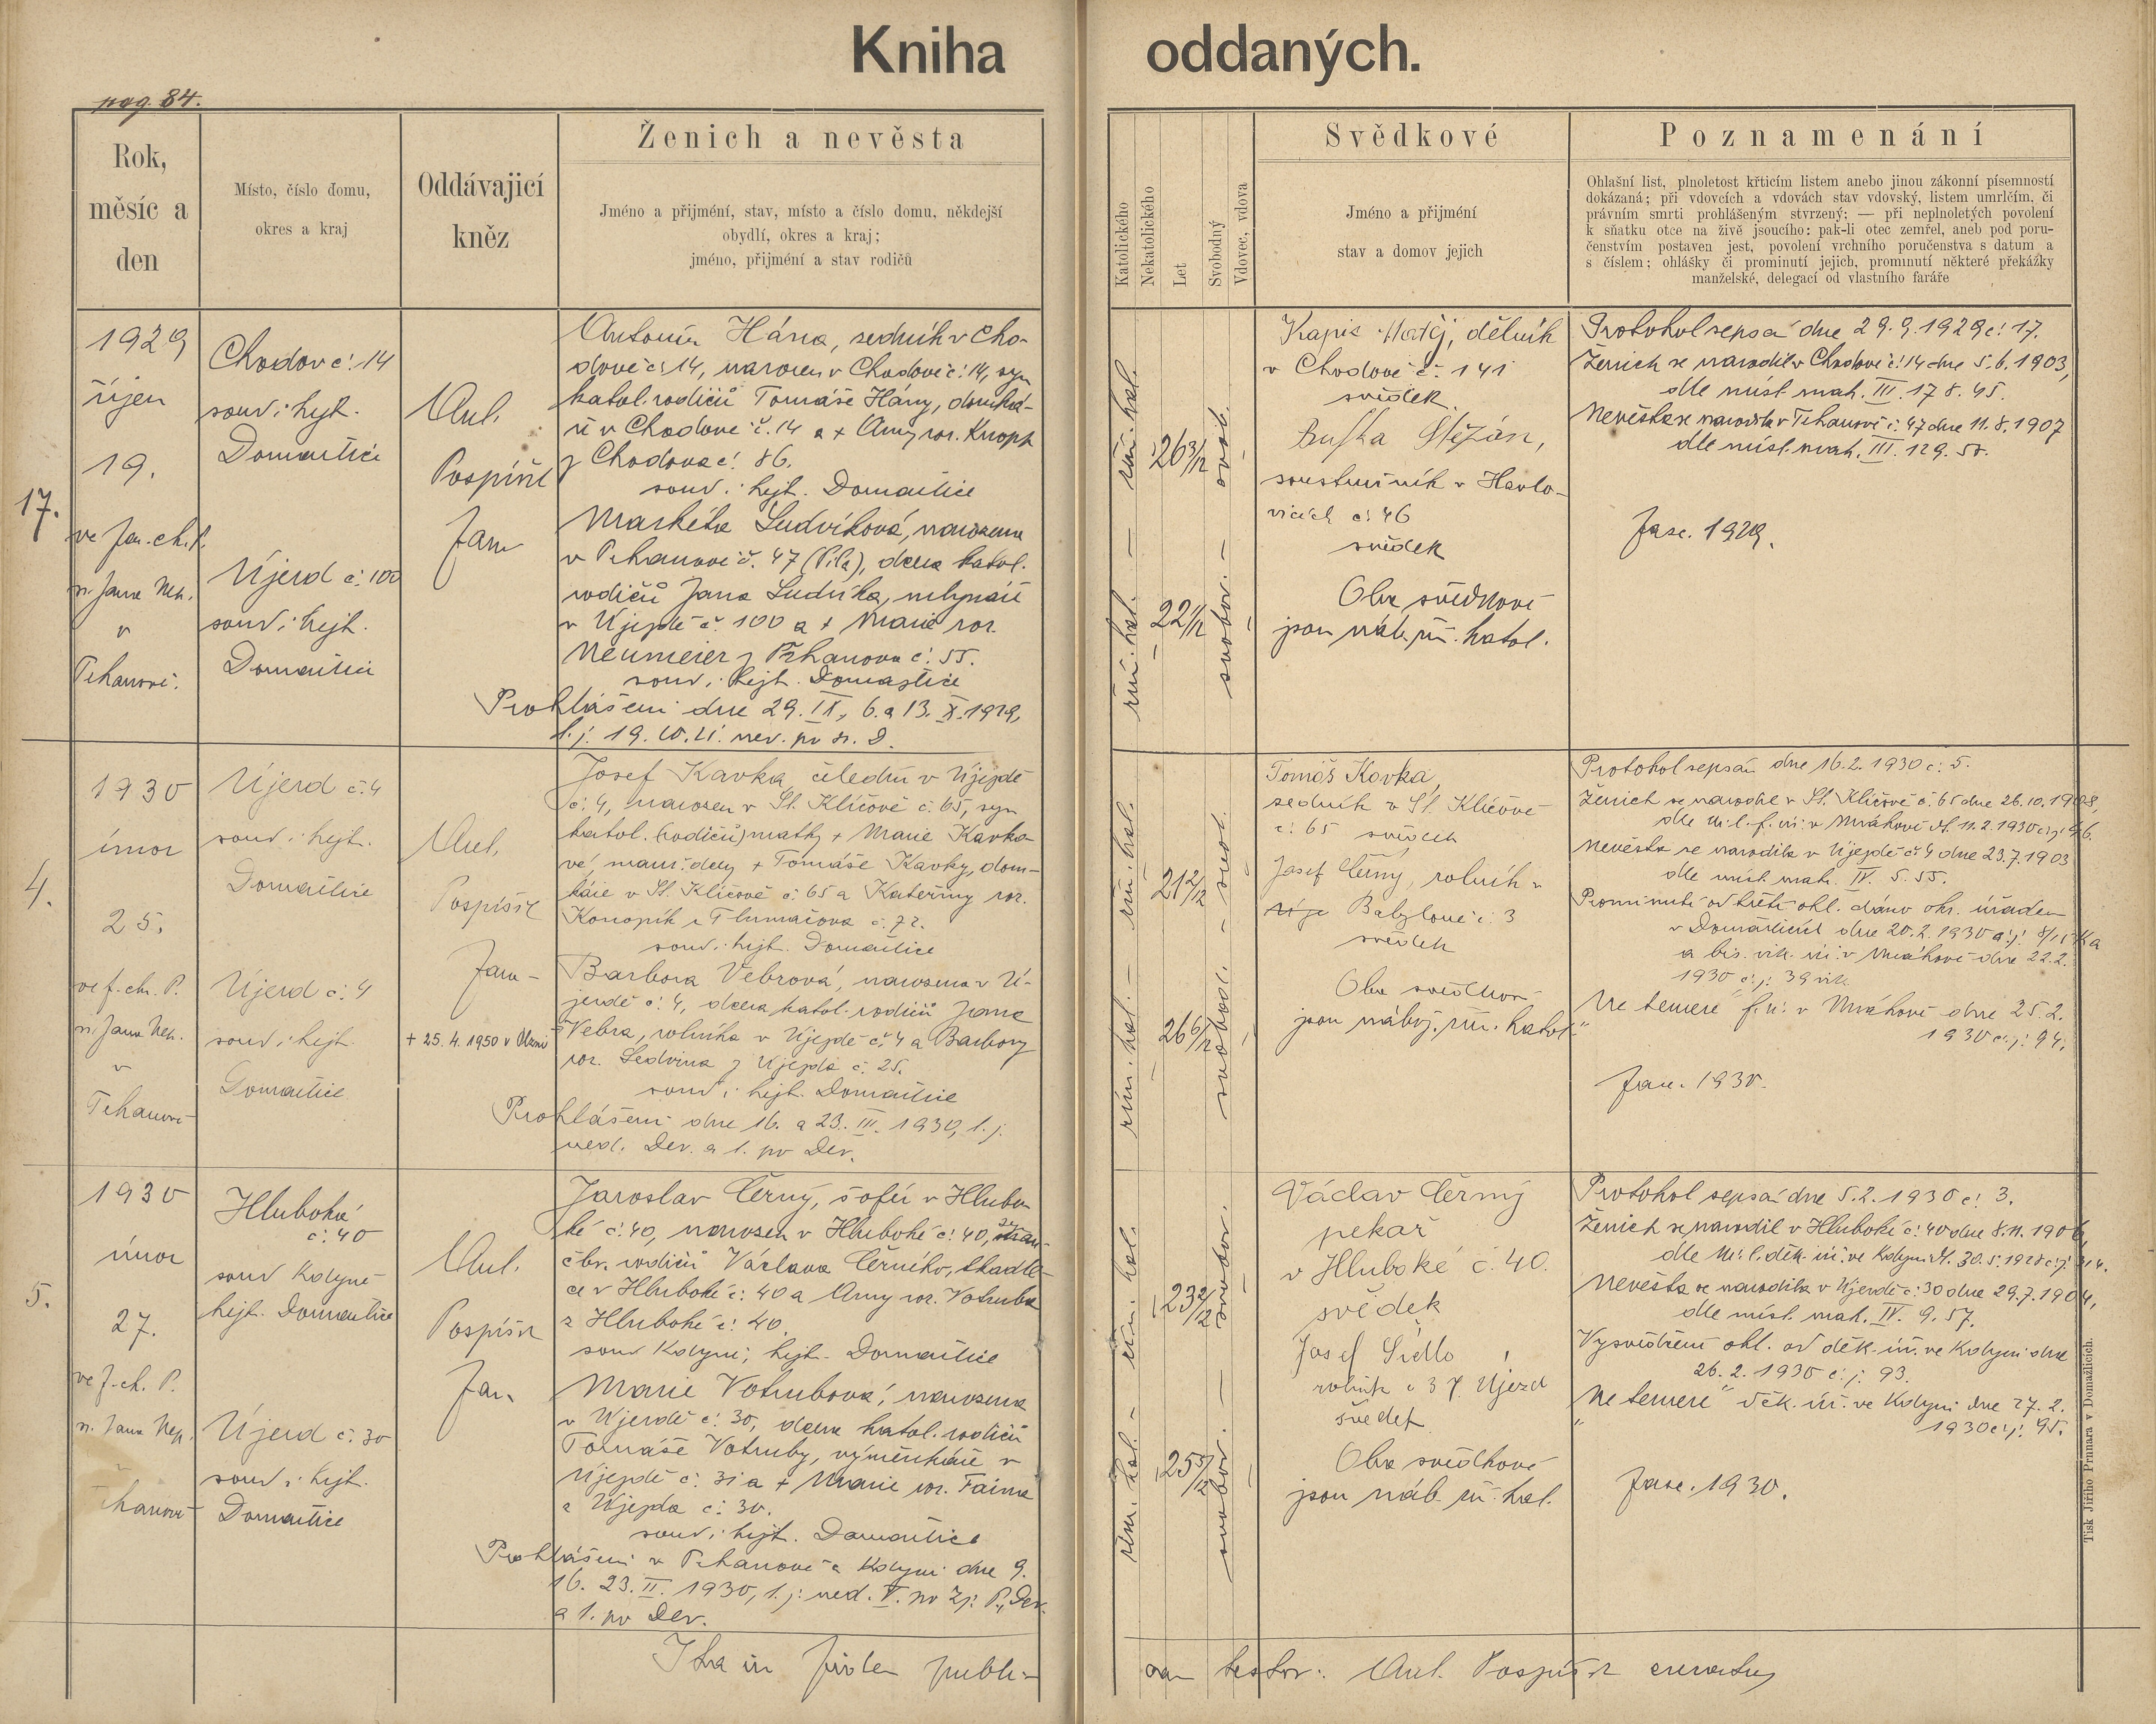 Kniha oddaných.
pag. 84.
Rok,
měsíc a
den
Místo, číslo domu,
okres a kraj
Oddávající
kněz
Ženich a nevěsta
Jméno a přijmení, stav, místo a číslo domu, někdejší
obydlí, okres a kraj;
jméno, přijmení a stav rodičů
Katolického
Nekatolického
Let
Svobodný
Vdovec, vdova
Svědkové
Jméno a přijmení
stav a domov jejich
Poznamenání
Ohlašní list, plnoletost křticím listem anebo jinou zákonní písemností
dokázaná; při vdovcích a vdovách stav vdovský, listem umrlčím, či
právním smrti prohlášeným stvrzený; — při neplnoletých povolení
k sňatku otce na živě jsoucího: pak-li otec zemřel, aneb pod poru-
čenstvím postaven jest, povolení vrchního poručenstva s datum a
s číslem; ohlášky či prominutí jejich, prominutí některé překážky
manželské, delegací od vlastního faráře
17.
1929
říjen
19.
ve far. ch. P.
sv. Jana Nep.
v
Trhanově.
Chodov č. 14
soud i hejt.
Domažlice
Újezd č. 100
soud i hejt.
Domažlice
Ant.
Pospíšil
Jan
Antonín Hána, sedník v Cho-
dově č. 14, narozen v Chodově č. 14, syn
katol. rodičů Tomáše Hány, domká-
ře v Chodově č. 14 a + Anny roz. Knopf
z Chodova č. 86.
soud i hejt. Domažlice
Markéta Ludvíková, narozena
v Trhanově č. 47 (Pila), dcera katol.
rodičů Jana Ludvíka, mlynáře
v Újezdě č. 100 a + Marie roz.
Neumeier z Trhanova č. 55.
soud i hejt. Domažlice
Prohlášeni dne 29. IX., 6. a 13. X. 1929,
t. j. 19. 20. 21. ned. po sv. D.
řím. kat. — řím. kat.
26 3/12
22 1/12
svob. — svobod.
Kapic Matěj, dělník
v Chodově č. 141
svědek
Buška Štěpán,
soustružník v Havlo-
vicích č. 46
svědek
Oba svědkové
jsou náb. řím. katol.
Protokol sepsán dne 29. 9. 1929 č. 17.
Ženich se narodil v Chodově č. 14 dne 5. 6. 1903,
dle míst. mat. III. 178. 45.
Nevěsta se narodila v Trhanově č. 47 dne 11. 8. 1907
dle míst. mat. III. 129. 58.
Fasc. 1929.
4.
1930
únor
25.
ve f. ch. P.
sv. Jana Nep.
v
Trhanově
Újezd č. 4
soud i hejt.
Domažlice
Újezd č. 4
soud i hejt.
Domažlice
Ant.
Pospíšil
Jan
+ 25. 4. 1950 v
Josef Kavka, čeledín v Újezdě
č. 4, narozen v St. Klíčově č. 65, syn
katol. (rodičů) matky + Marie Kavko-
vé, manž. dcery + Tomáše Kavky, dom-
káře v St. Klíčově č. 65 a Kateřiny roz.
Konopík z Tlumačova č. 72.
soud i hejt. Domažlice
Barbora Vebrová, narozena v Ú-
jezdě č. 4, dcera katol. rodičů Jana
Vebra, rolníka v Újezdě č. 4 a Barbory
roz. Sedvina z Újezda č. 25.
soud i hejt. Domažlice
Prohlášeni dne 16. a 23. III. 1930, t. j.
ned. Dev. a 1. po Dev.
řím. kat. — řím. kat.
21 2/12
26 6/12
svobod. — svobod.
Tomáš Kavka,
sedník v St. Klíčově
č. 65 svědek
Josef Černý, rolník v
Babyloně č. 3
svědek
Oba svědkové
jsou nábož. řím. katol.
Protokol sepsán dne 16. 2. 1930 č. 5.
Ženich se narodil v St. Klíčově č. 65 dne 26. 10. 1908,
dle kř. l. f. ú. v Mrákově dt. 11. 2. 1930 č. j. 46.
Nevěsta se narodila v Újezdě č. 4 dne 23. 7. 1903
dle míst. mat. IV. 5. 55.
Prominutí od třetí ohl. dáno okr. úřadem
v Domažlicích dne 20. 2. 1930 č. j.
a bis. vik. úř. v Mrákově dne 22. 2.
1930 č. j. 39 vik.
„Ne temere" f. ú. v Mrákově dne 25. 2.
1930 č. j. 94.
Fasc. 1930.
5.
1930
únor
27.
ve f. ch. P.
sv. Jana Nep.
v
Trhanově
Hluboká
č. 40
soud Kdyně
hejt. Domažlice
Újezd č. 30
soud i hejt.
Domažlice
Ant.
Pospíšil
Jan
Jaroslav Černý, šofér v Hlubo-
ké č. 40, narozen v Hluboké č. 40, syn
čbr. rodičů Václava Černého, tkadl-
ce v Hluboké č. 40 a Anny roz. Votruba
z Hluboké č. 40.
soud Kdyně, hejt. Domažlice
Marie Votrubová, narozena
v Újezdě č. 30, dcera katol. rodičů
Tomáše Votruby, výměnkáře v
Újezdě č. 31 a + Marie roz. Faina
z Újezda č. 30.
soud i hejt. Domažlice
Prohlášeni v Trhanově a Kdyni dne 9.
16. 23. II. 1930, t. j. ned. V. po Zj. P., Dev.
a 1. po Dev.
řím. kat. — řím. kat.
23 2/12
25 5/12
svobod. — svobod.
Václav Černý
pekař
v Hluboké č. 40.
svědek
Josef Sidlo
rolník č 37. Újezd
svědek
Oba svědkové
jsou náb. řím. kat.
Protokol sepsán dne 5. 2. 1930 č. 3.
Ženich se narodil v Hluboké č. 40 dne 8. 11. 1906,
dle kř. l. děk. úř. ve Kdyni dt. 30. 5. 1928 č. j. 214.
Nevěsta se narodila v Újezdě č. 30 dne 29. 7. 1904,
dle míst. mat. IV. 9. 57.
Vysvědčení ohl. od děk. úř. ve Kdyni dne
26. 2. 1930 č. j. 93.
„Ne temere" děk. úř. ve Kdyni dne 27. 2.
1930 č. j. 95.
Fasc. 1930.
Ita in fidem publi-
cam testor: Ant. Pospíšil
Tisk Jiřího Prunara v Domažlicích.